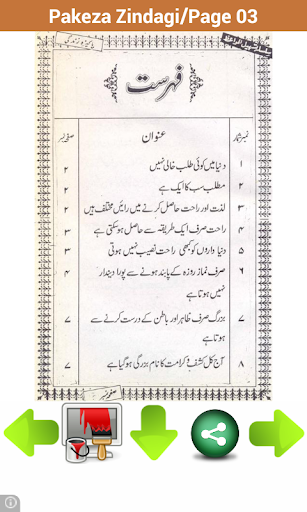 Pakeza Zindagi/Page 03
پاکیزہ زندگی
فہرست
نمبر شمار عنوان صفحہ نمبر
۱ دنیا میں کوئی طلب خالی نہیں ۲
۲ مطلب سب کا ایک ہے ۲
۳ لذت اور راحت حاصل کرنے میں رائیں مختلف ہیں ۲
۴ راحت صرف ایک طریقہ سے حاصل ہو سکتی ہے ۳
۵ دنیا داروں کو کبھی راحت نصیب نہیں ہوتی ۳
۶ صرف نماز روزہ کے پابند ہونے سے پورا دیندار ۴
نہیں ہوتا ہے
۷ بزرگ صرف ظاہر اور باطن کے درست کرنے سے ۷
ہوتا ہے
۸ آج کل کشف و کرامت کا نام بزرگی ہو گیا ہے ۷
صفحہ نمبر